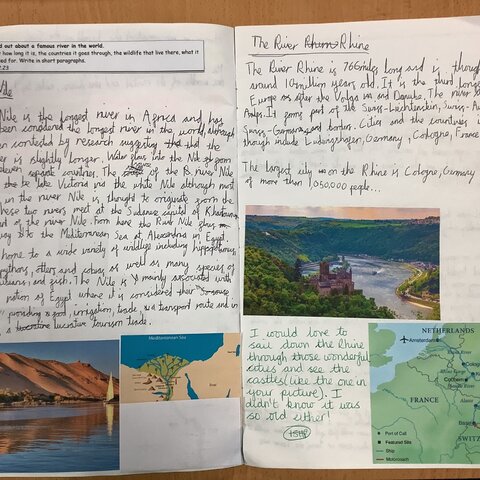 d out about a famous river in the world.
how long it is, the countries it goes through, the wildlife that live there, what it
ed for. Write in short paragraphs.
Nile
Nile is the longest river in Africa and has
been considered the longest river in the world, although
been contested by research suggesting that the
river is slightly longer. Water flows into the Nile from
eleven countries. The source of the river Nile
the be lake Victoria via the white Nile although most
in the river Nile is thought to originate from
these two rivers meet at the Sudanese capital of Khartoum
of the river Nile. From here the River Nile flows
way to the Mediterranean Sea at Alexandria in Egypt.
home to a wide variety of wildlife including hippopotamus,
pythons, otters and cobras as well as many species of
and fish. The Nile is mainly associated with
nation of Egypt where it is considered
providing food, irrigation, trade, transport route and in
a lucrative tourism trade.
Mediterranean Sea
The River Rhine
The River Rhine is 766 miles long and is though
around 10 million years old. It is the third longest
Europe after the Volga and Danube. The river
Alps. It forms part of the Swiss-Liechtenstein, Swiss-Au
Swiss-German borders. Cities and the countries it
though include Ludwigshafen, Germany, Cologne, France
The largest city on the Rhine is Cologne, Germany
of more than 1,050,000 people...
I would love to
sail down the Rhine
through those wonderful
cities and see the
castles (like the one in
your picture). I
didn't know it was
so old either!
NETHERLANDS
Amsterdam
FRANCE
SWITZ
Port of Call
Featured Site
Ship
Motorcoach